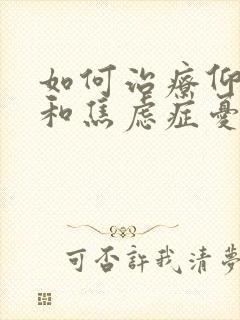 如何治療仰
和焦虑症憂
可否許我清夢